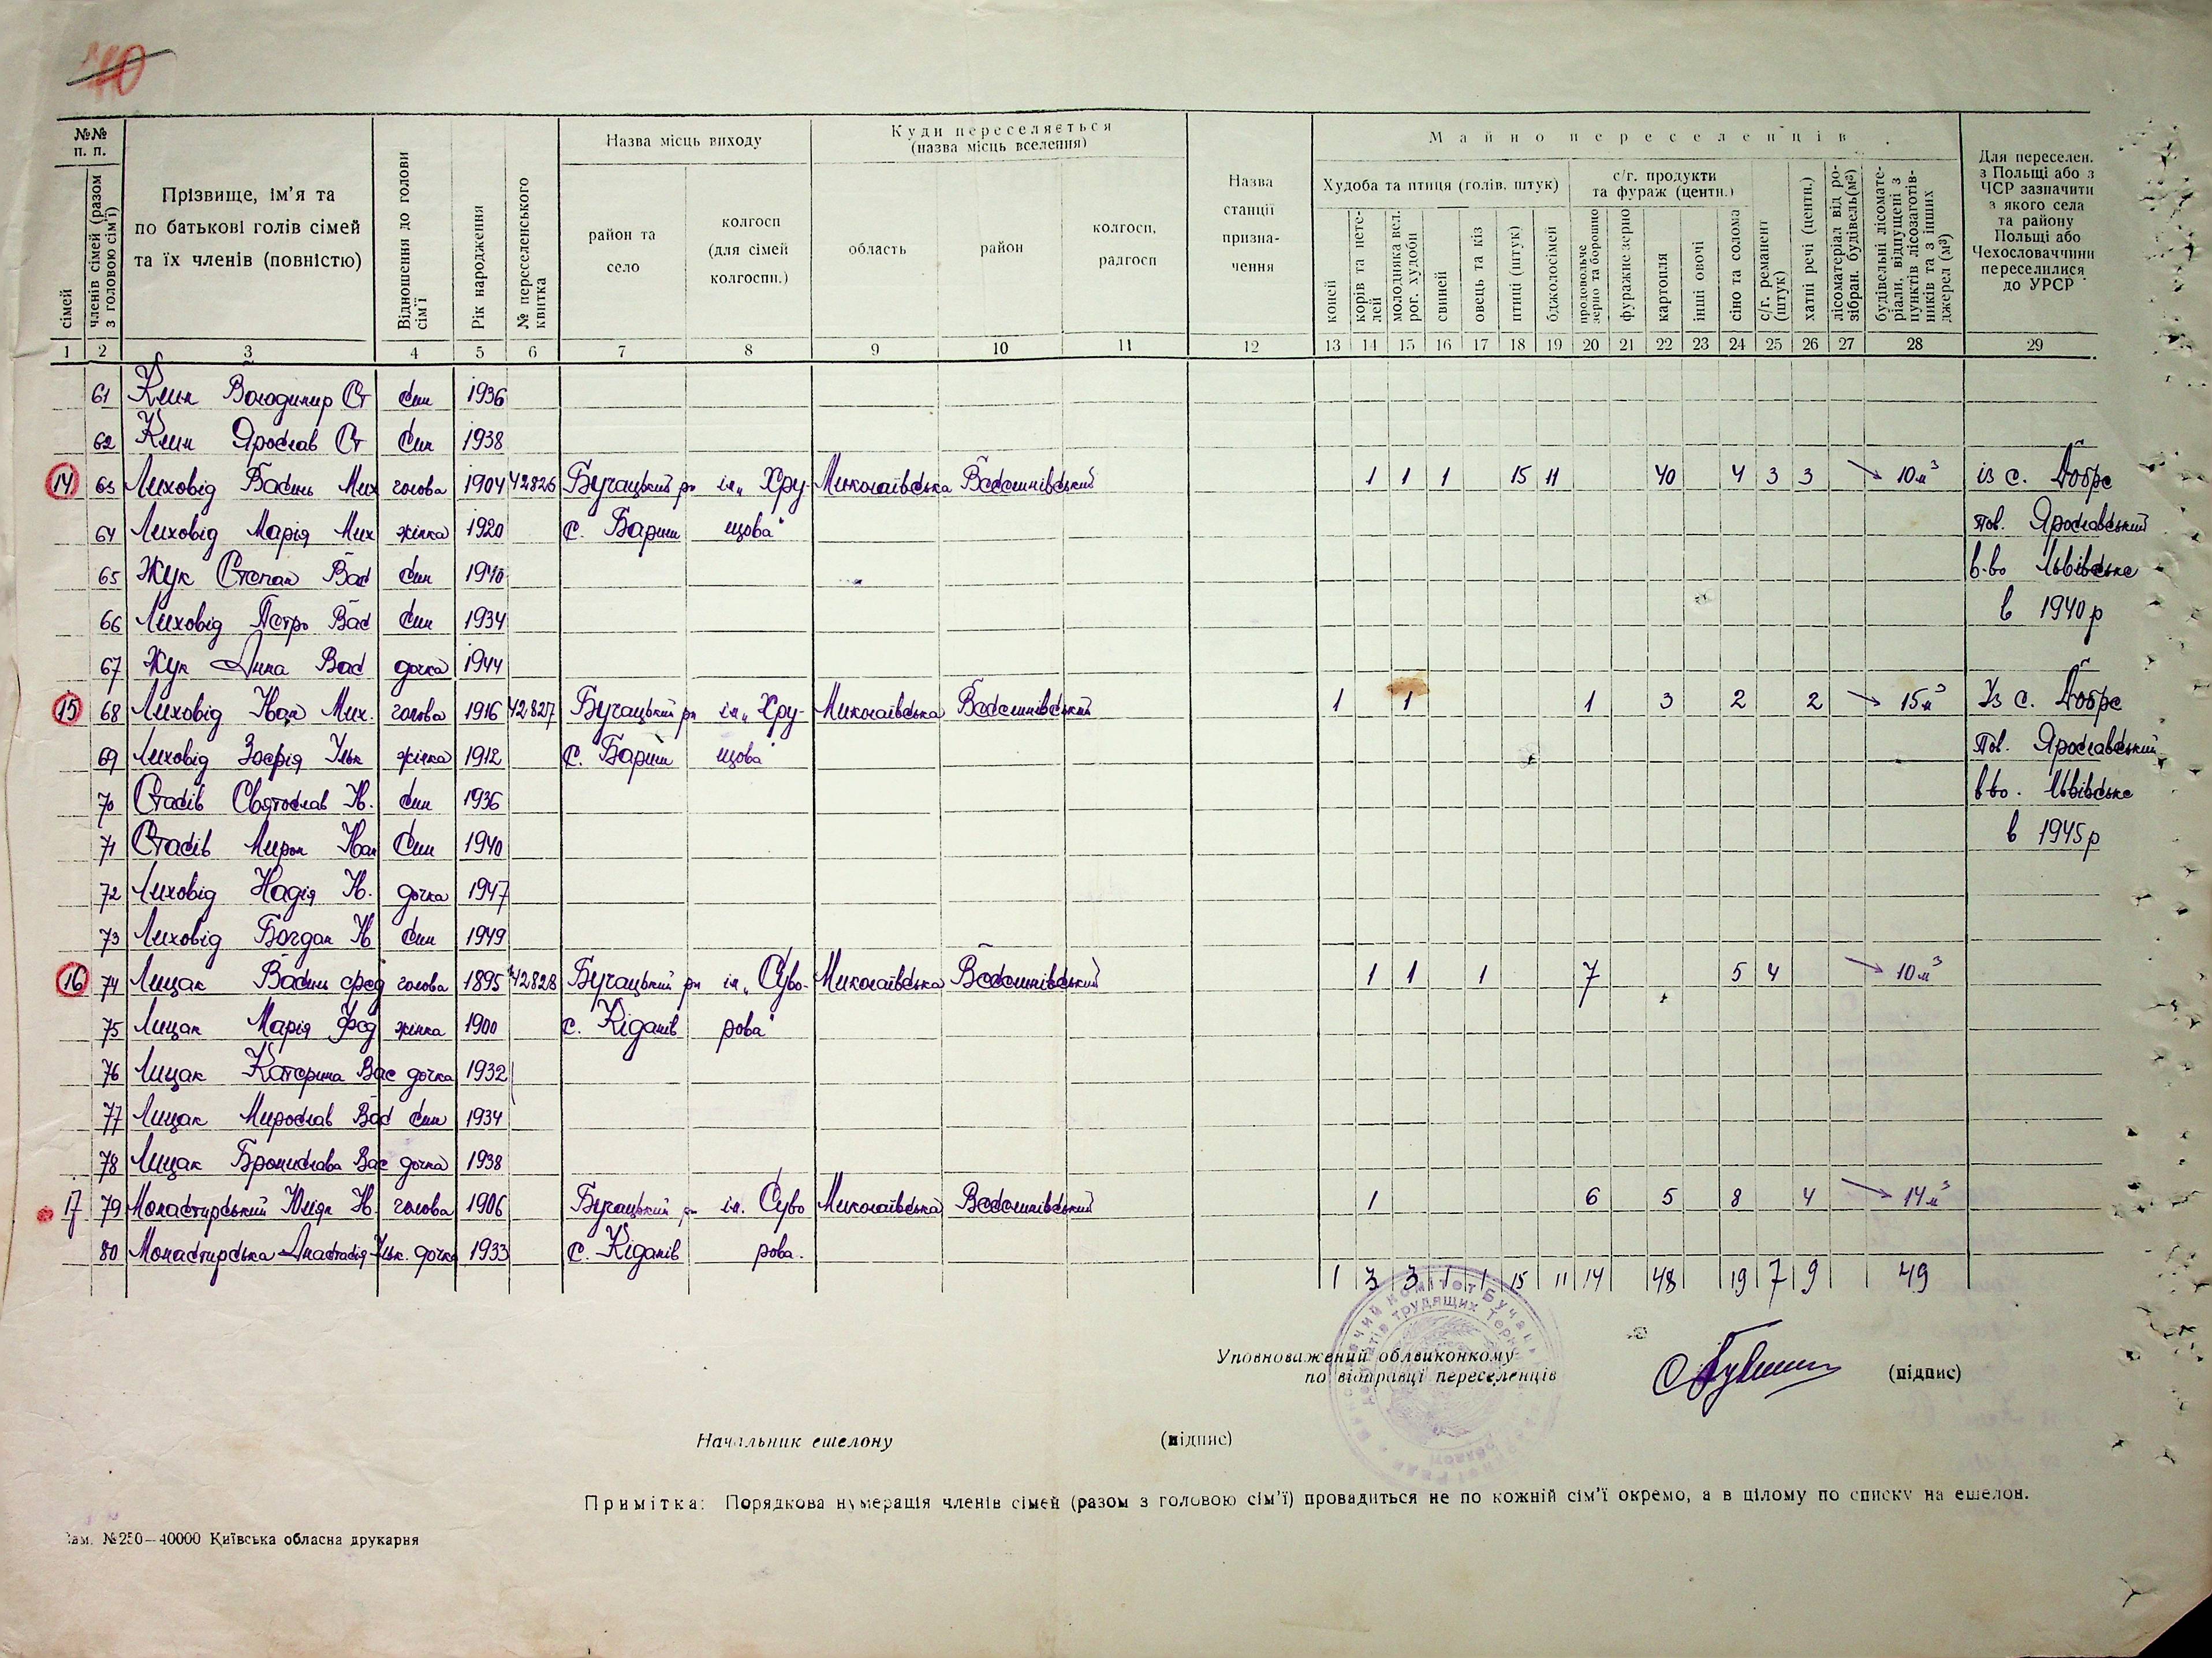 40
№№ п. п.
сімей
членів сімей (разом з головою сім'ї)
Прізвище, ім'я та по батькові голів сімей та їх членів (повністю)
Відношення до голови сім'ї
Рік народження
№ переселенського квитка
Назва місць виходу
район та село
колгосп (для сімей колгоспн.)
Куди переселяється (назва місць вселення)
область
район
колгосп, радгосп
Назва станції призначення
Майно переселенців
Худоба та птиця (голів, штук)
коней
корів та нетелей
молодняка вел. рог. худоби
свиней
овець та кіз
птиці (штук)
бджолосімей
с/г. продукти та фураж (центн.)
продовольче зерно та борошно
фуражне зерно
картопля
інші овочі
сіно та солома
с/г. реманент (штук)
хатні речі (центн.)
лісоматеріал від розібран. будівель (м³)
будівельні лісоматеріали, відпущені з пунктів лісозаготівників та з інших джерел (м³)
Для переселен. з Польщі або з ЧСР зазначити з якого села та району Польщі або Чехословаччини переселилися до УРСР
1 2 3 4 5 6 7 8 9 10 11 12 13 14 15 16 17 18 19 20 21 22 23 24 25 26 27 28 29
61 Клин Володимир Ст син 1936
62 Клин Ярослав Ст син 1938
14 63 Лиховід Василь Мих голова 1904 42826 Бучацький рн ім „Хру- Миколаївська Веселинівський 1 1 1 15 11 40 4 3 3 10м³ із с. Добре
64 Лиховід Марія Мих жінка 1920 с. Бариш щова" пов. Ярославський
65 Жук Степан Вас син 1940 в-во Львівське
66 Лиховід Петро Вас син 1934 в 1940 р
67 Жук Анна Вас дочка 1944
15 68 Лиховід Іван Мих. голова 1916 42827 Бучацький рн ім „Хру- Миколаївська Веселинівський 1 1 1 3 2 2 15м³ Із с. Добре
69 Лиховід Зофія Ільк жінка 1912 с. Бариш щова" пов. Ярославський
70 Стасів Святослав Ів. син 1936 в-во. Львівське
71 Стасів Мирон Іван син 1940 в 1945 р
72 Лиховід Надія Ів. дочка 1947
73 Лиховід Богдан Ів син 1949
16 74 Лицак Василь Фед голова 1895 42828 Бучацький рн ім „Суво- Миколаївська Веселинівський 1 1 1 7 5 4 10м³
75 Лицак Марія Фед жінка 1900 с. Кіданів рова"
76 Лицак Катерина Вас дочка 1932
77 Лицак Мирослав Вас син 1934
78 Лицак Броніслава Вас дочка 1938
17 79 Монастирський Ів. голова 1906 Бучацький рн ім. Суво Миколаївська Веселинівський 1 6 5 8 4 14м³
80 Монастирська Анастасія Ільк. дочка 1933 с. Кіданів рова.
1 3 3 1 1 15 11 14 48 19 7 9 49
Уповноважений облвиконкому по відправці переселенців (підпис)
Начальник ешелону (підпис)
Примітка: Порядкова нумерація членів сімей (разом з головою сім'ї) провадиться не по кожній сім'ї окремо, а в цілому по списку на ешелон.
Зам. №250—40000 Київська обласна друкарня